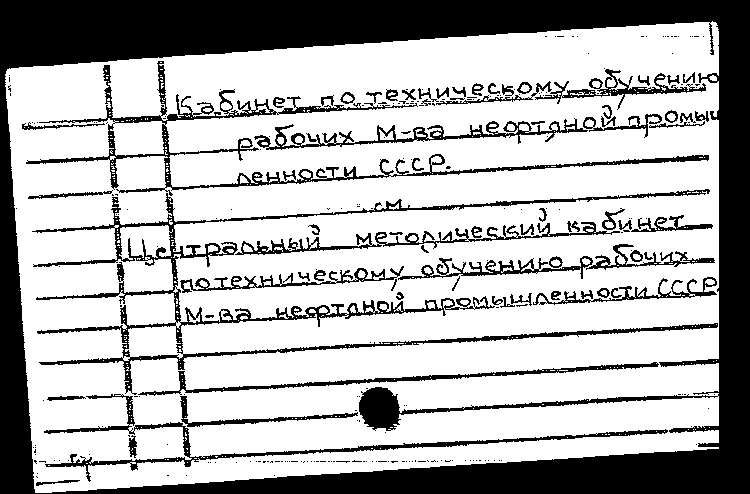 Кабинет по техническому обучению
рабочих М-ва нефтяной промыш
ленности СССР.
см.
Центральный методический кабинет
по техническому обучению рабочих
М-ва нефтяной промышленности СССР.